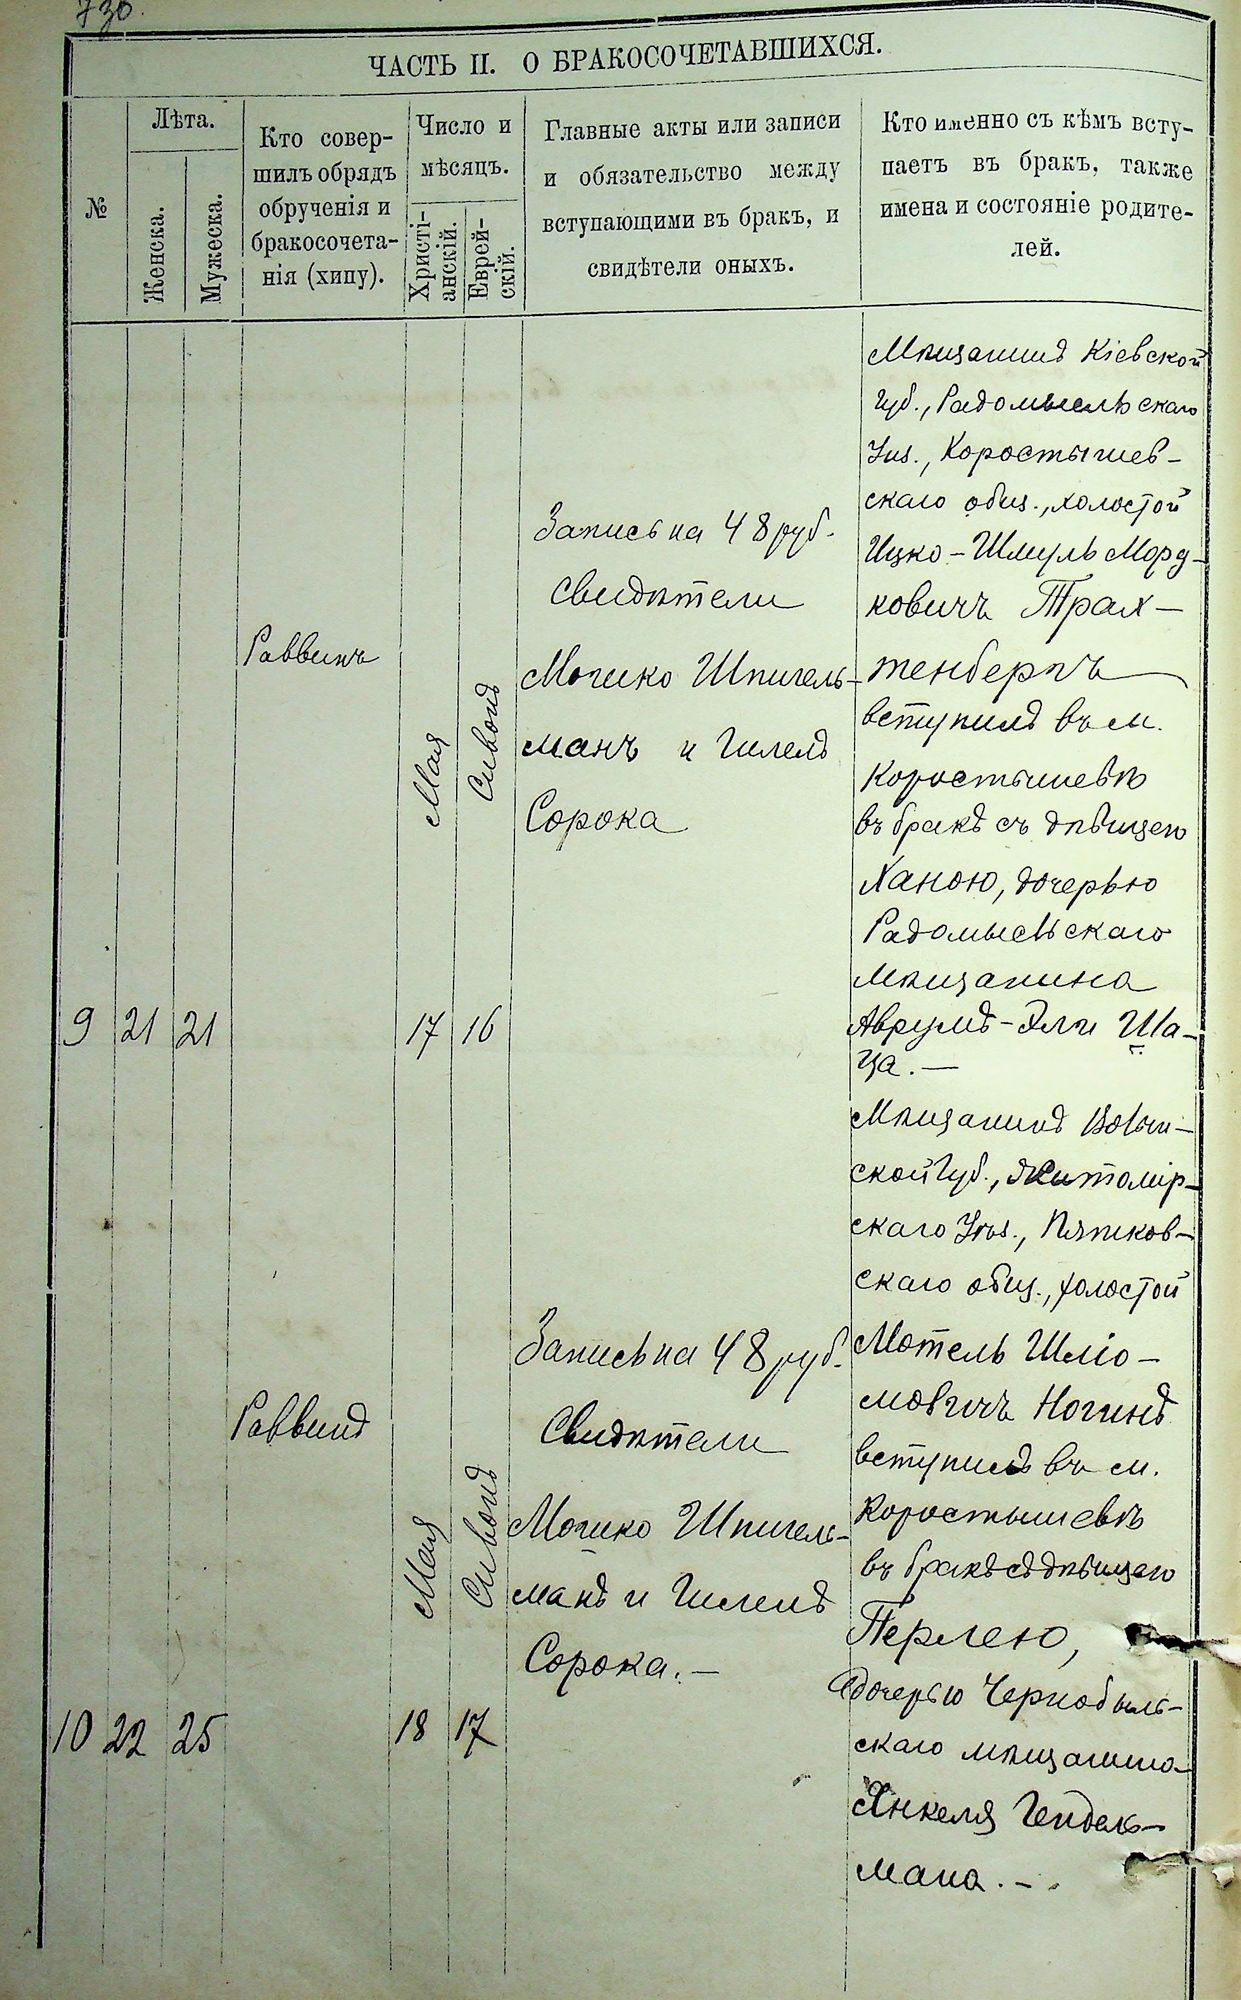 730.
ЧАСТЬ II. О БРАКОСОЧЕТАВШИХСЯ.
№
Лѣта.
Женска.
Мужеска.
Кто совер-
шилъ обрядъ
обрученія и
бракосочета-
нія (хипу).
Число и
мѣсяцъ.
Христі-
анскій.
Еврей-
скій.
Главные акты или записи
и обязательство между
вступающими въ бракъ, и
свидѣтели оныхъ.
Кто именно съ кѣмъ всту-
паетъ въ бракъ, также
имена и состояніе родите-
лей.
9
21
21
Раввинъ
Мая
17
Сивонъ
16
Запись на 48 руб.
Свидѣтели
Мошко Шпигель-
манъ и Гилелъ
Сорока
Мѣщанинъ Кіевской
губ., Радомысльскаго
Уѣз., Коростышев-
скаго общ., холостой
Ицко-Шмуль Морд-
ковичъ Трах-
тенбергъ
вступилъ въ м.
Коростышевѣ
въ бракъ съ дѣвицею
Ханою, дочерью
Радомысльскаго
мѣщанина
Аврумъ-Эли Ша-
ца.—
10
22
25
Раввинъ
Мая
18
Сивонъ
17
Запись на 48 руб.
Свидѣтели
Мошко Шпигель-
манъ и Гилелъ
Сорока.—
Мѣщанинъ Волын-
ской Губ., Житомір-
скаго Уѣз., Пятков-
скаго общ., холостой
Мотель Шліо-
мовичъ Ногинъ
вступилъ въ м.
Коростышевѣ
въ бракъ съ дѣвицею
Перлею,
дочерью Чернобыль-
скаго мѣщанина
Янкеля Гендель-
мана.—